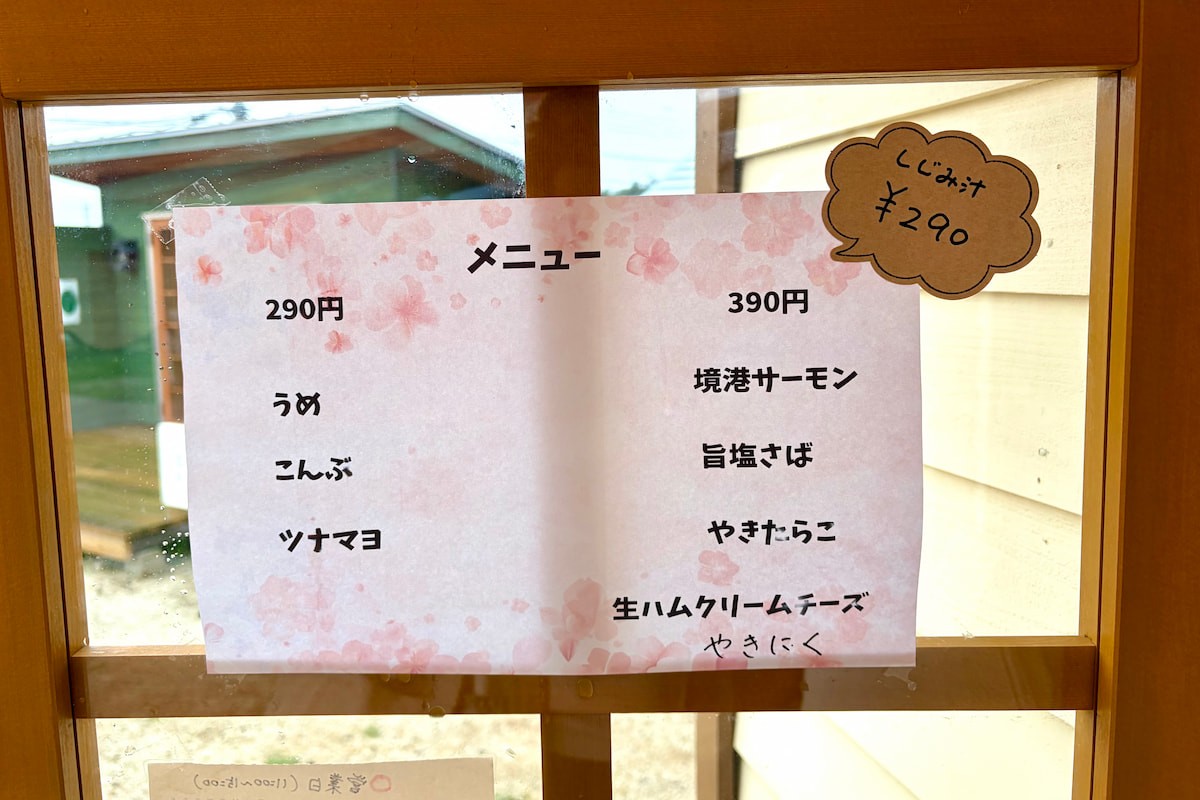 メニュー
290円
うめ
こんぶ
ツナマヨ
390円
境港サーモン
旨塩さば
やきたらこ
生ハムクリームチーズ
やきにく
しじみ汁
¥290
○営業日(11:00〜15:00)